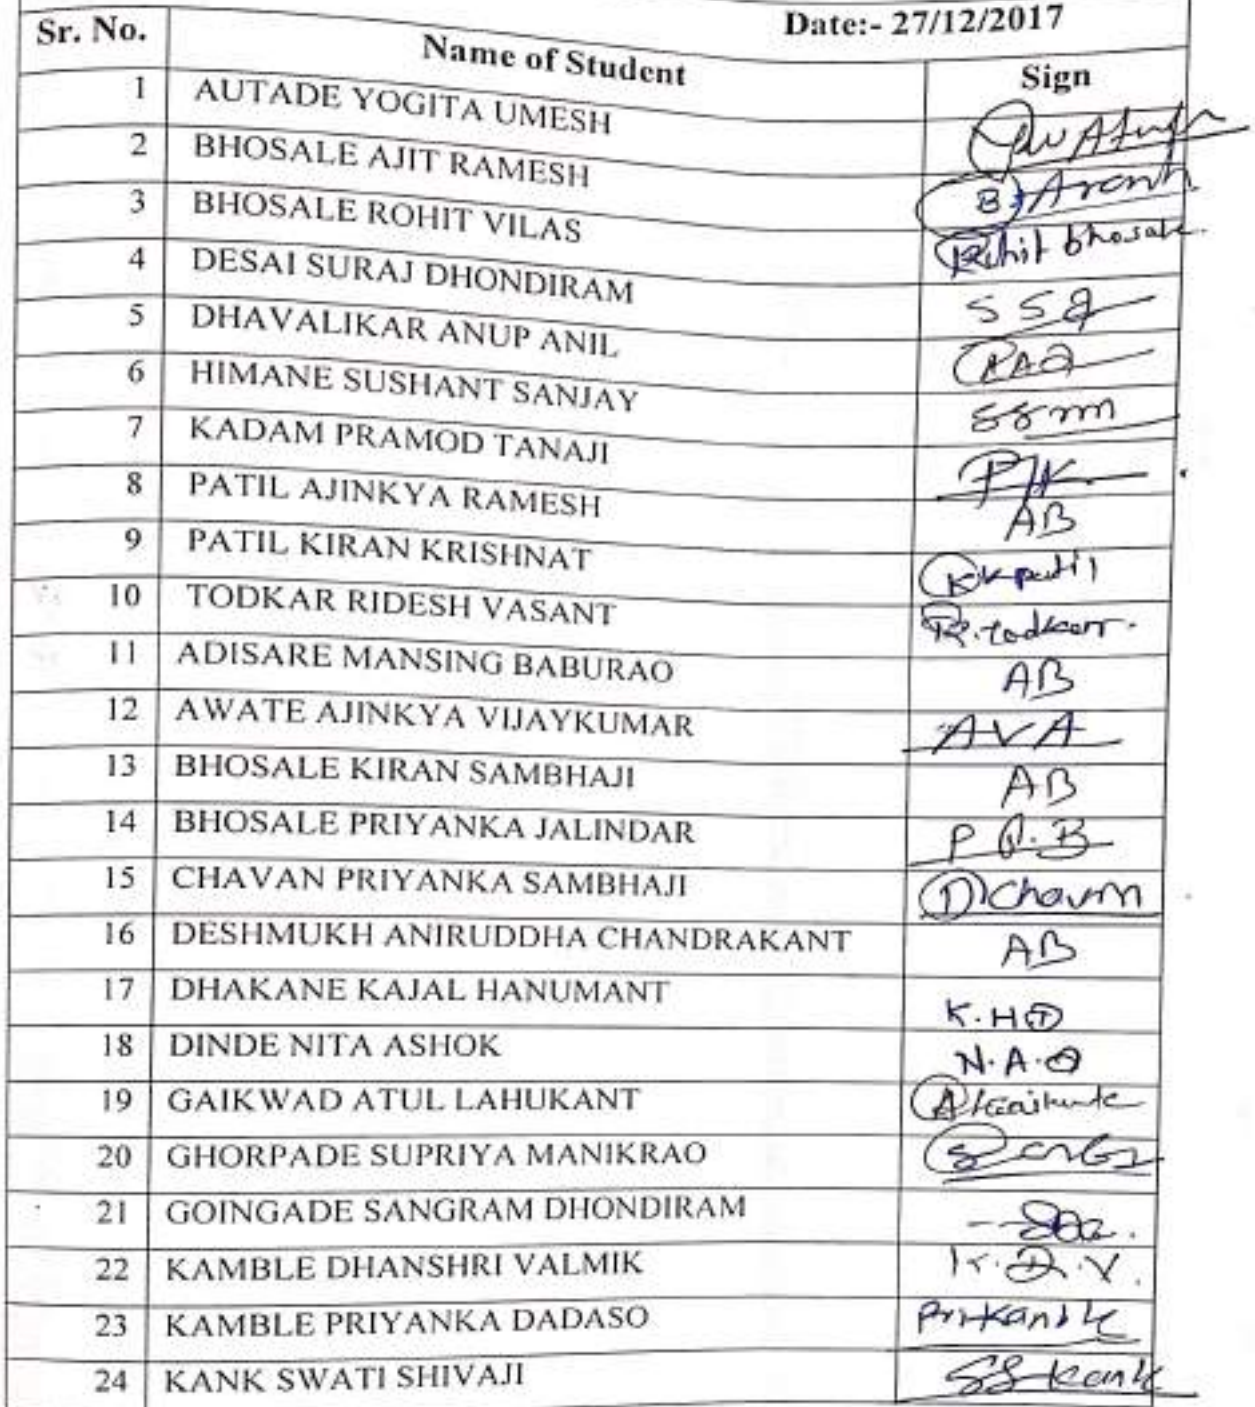 Date:- 27/12/2017
Sr. No. Name of Student Sign
1 AUTADE YOGITA UMESH
2 BHOSALE AJIT RAMESH
3 BHOSALE ROHIT VILAS Rohit bhosale.
4 DESAI SURAJ DHONDIRAM
5 DHAVALIKAR ANUP ANIL
6 HIMANE SUSHANT SANJAY
7 KADAM PRAMOD TANAJI
8 PATIL AJINKYA RAMESH AB
9 PATIL KIRAN KRISHNAT K k patil
10 TODKAR RIDESH VASANT R. todkarr.
11 ADISARE MANSING BABURAO AB
12 AWATE AJINKYA VIJAYKUMAR AVA
13 BHOSALE KIRAN SAMBHAJI AB
14 BHOSALE PRIYANKA JALINDAR
15 CHAVAN PRIYANKA SAMBHAJI
16 DESHMUKH ANIRUDDHA CHANDRAKANT AB
17 DHAKANE KAJAL HANUMANT K.HD
18 DINDE NITA ASHOK N.A.D
19 GAIKWAD ATUL LAHUKANT
20 GHORPADE SUPRIYA MANIKRAO
21 GOINGADE SANGRAM DHONDIRAM
22 KAMBLE DHANSHRI VALMIK K.D.V.
23 KAMBLE PRIYANKA DADASO
24 KANK SWATI SHIVAJI SS kank